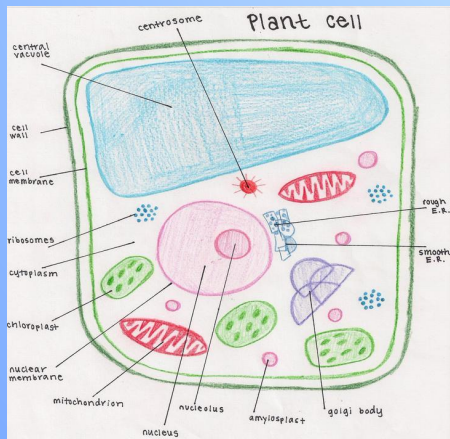 Plant cell
centrosome
central
vacuole
cell
wall
cell
membrane
ribosomes
cytoplasm
chloroplast
nuclear
membrane
mitochondrion
nucleus
nucleolus
amylosplast
golgi body
smooth
E.R.
rough
E.R.